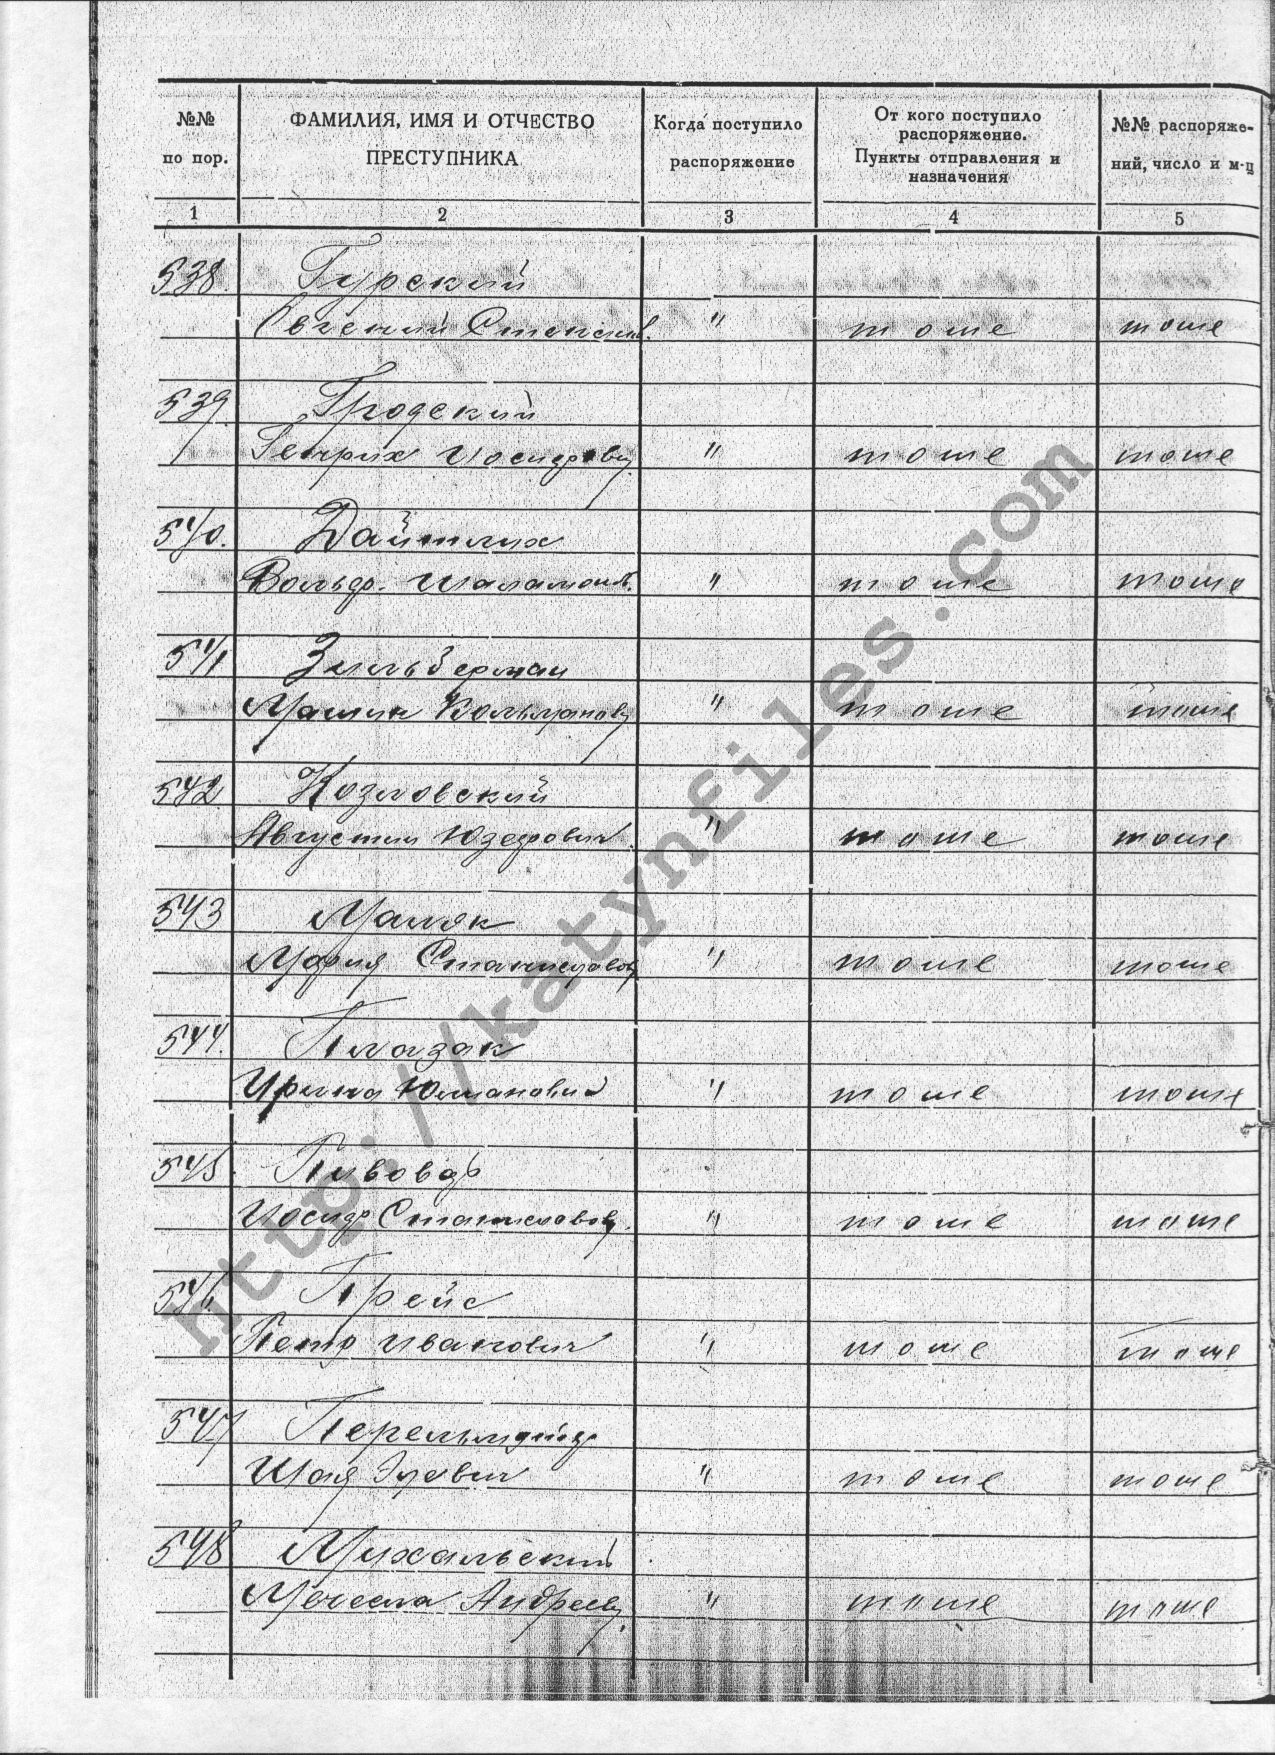 №№
по пор.
ФАМИЛИЯ, ИМЯ И ОТЧЕСТВО
ПРЕСТУПНИКА
Когда поступило
распоряжение
От кого поступило
распоряжение.
Пункты отправления и
назначения
№№ распоряже-
ний, число и м-ц
1 2 3 4 5
538. Гурский
Евгений Станислав. " тоже тоже
539. Гродский
Генрих Иосифович " тоже тоже
540. Дайтлих
Вольф. Шаламонов. " тоже тоже
541 Зильберман
Кальманович " тоже тоже
542 Козловский
Августин Юзефович " тоже тоже
543 Маляк
Мария Станиславов " тоже тоже
544. Плазак
Ирина " тоже тоже
545. Пивовар
Иосиф Станиславов. " тоже тоже
546. Прейс
Петр Иванович " тоже тоже
547 Перельмутр
Шая " тоже тоже
548 Михальский
Мечесла Андреев. " тоже тоже
http://katynfiles.com